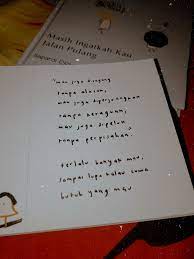 Masih Ingatkah Kau
Jalan Pulang
Sapardi Djoko
"mau juga disayang
tanpa alasan,
mau juga diperjuangkan
tanpa keraguan,
mau juga dipeluk
tanpa perpisahan."
terlalu banyak mau,
sampai lupa kalau cuma
butuh yang mau